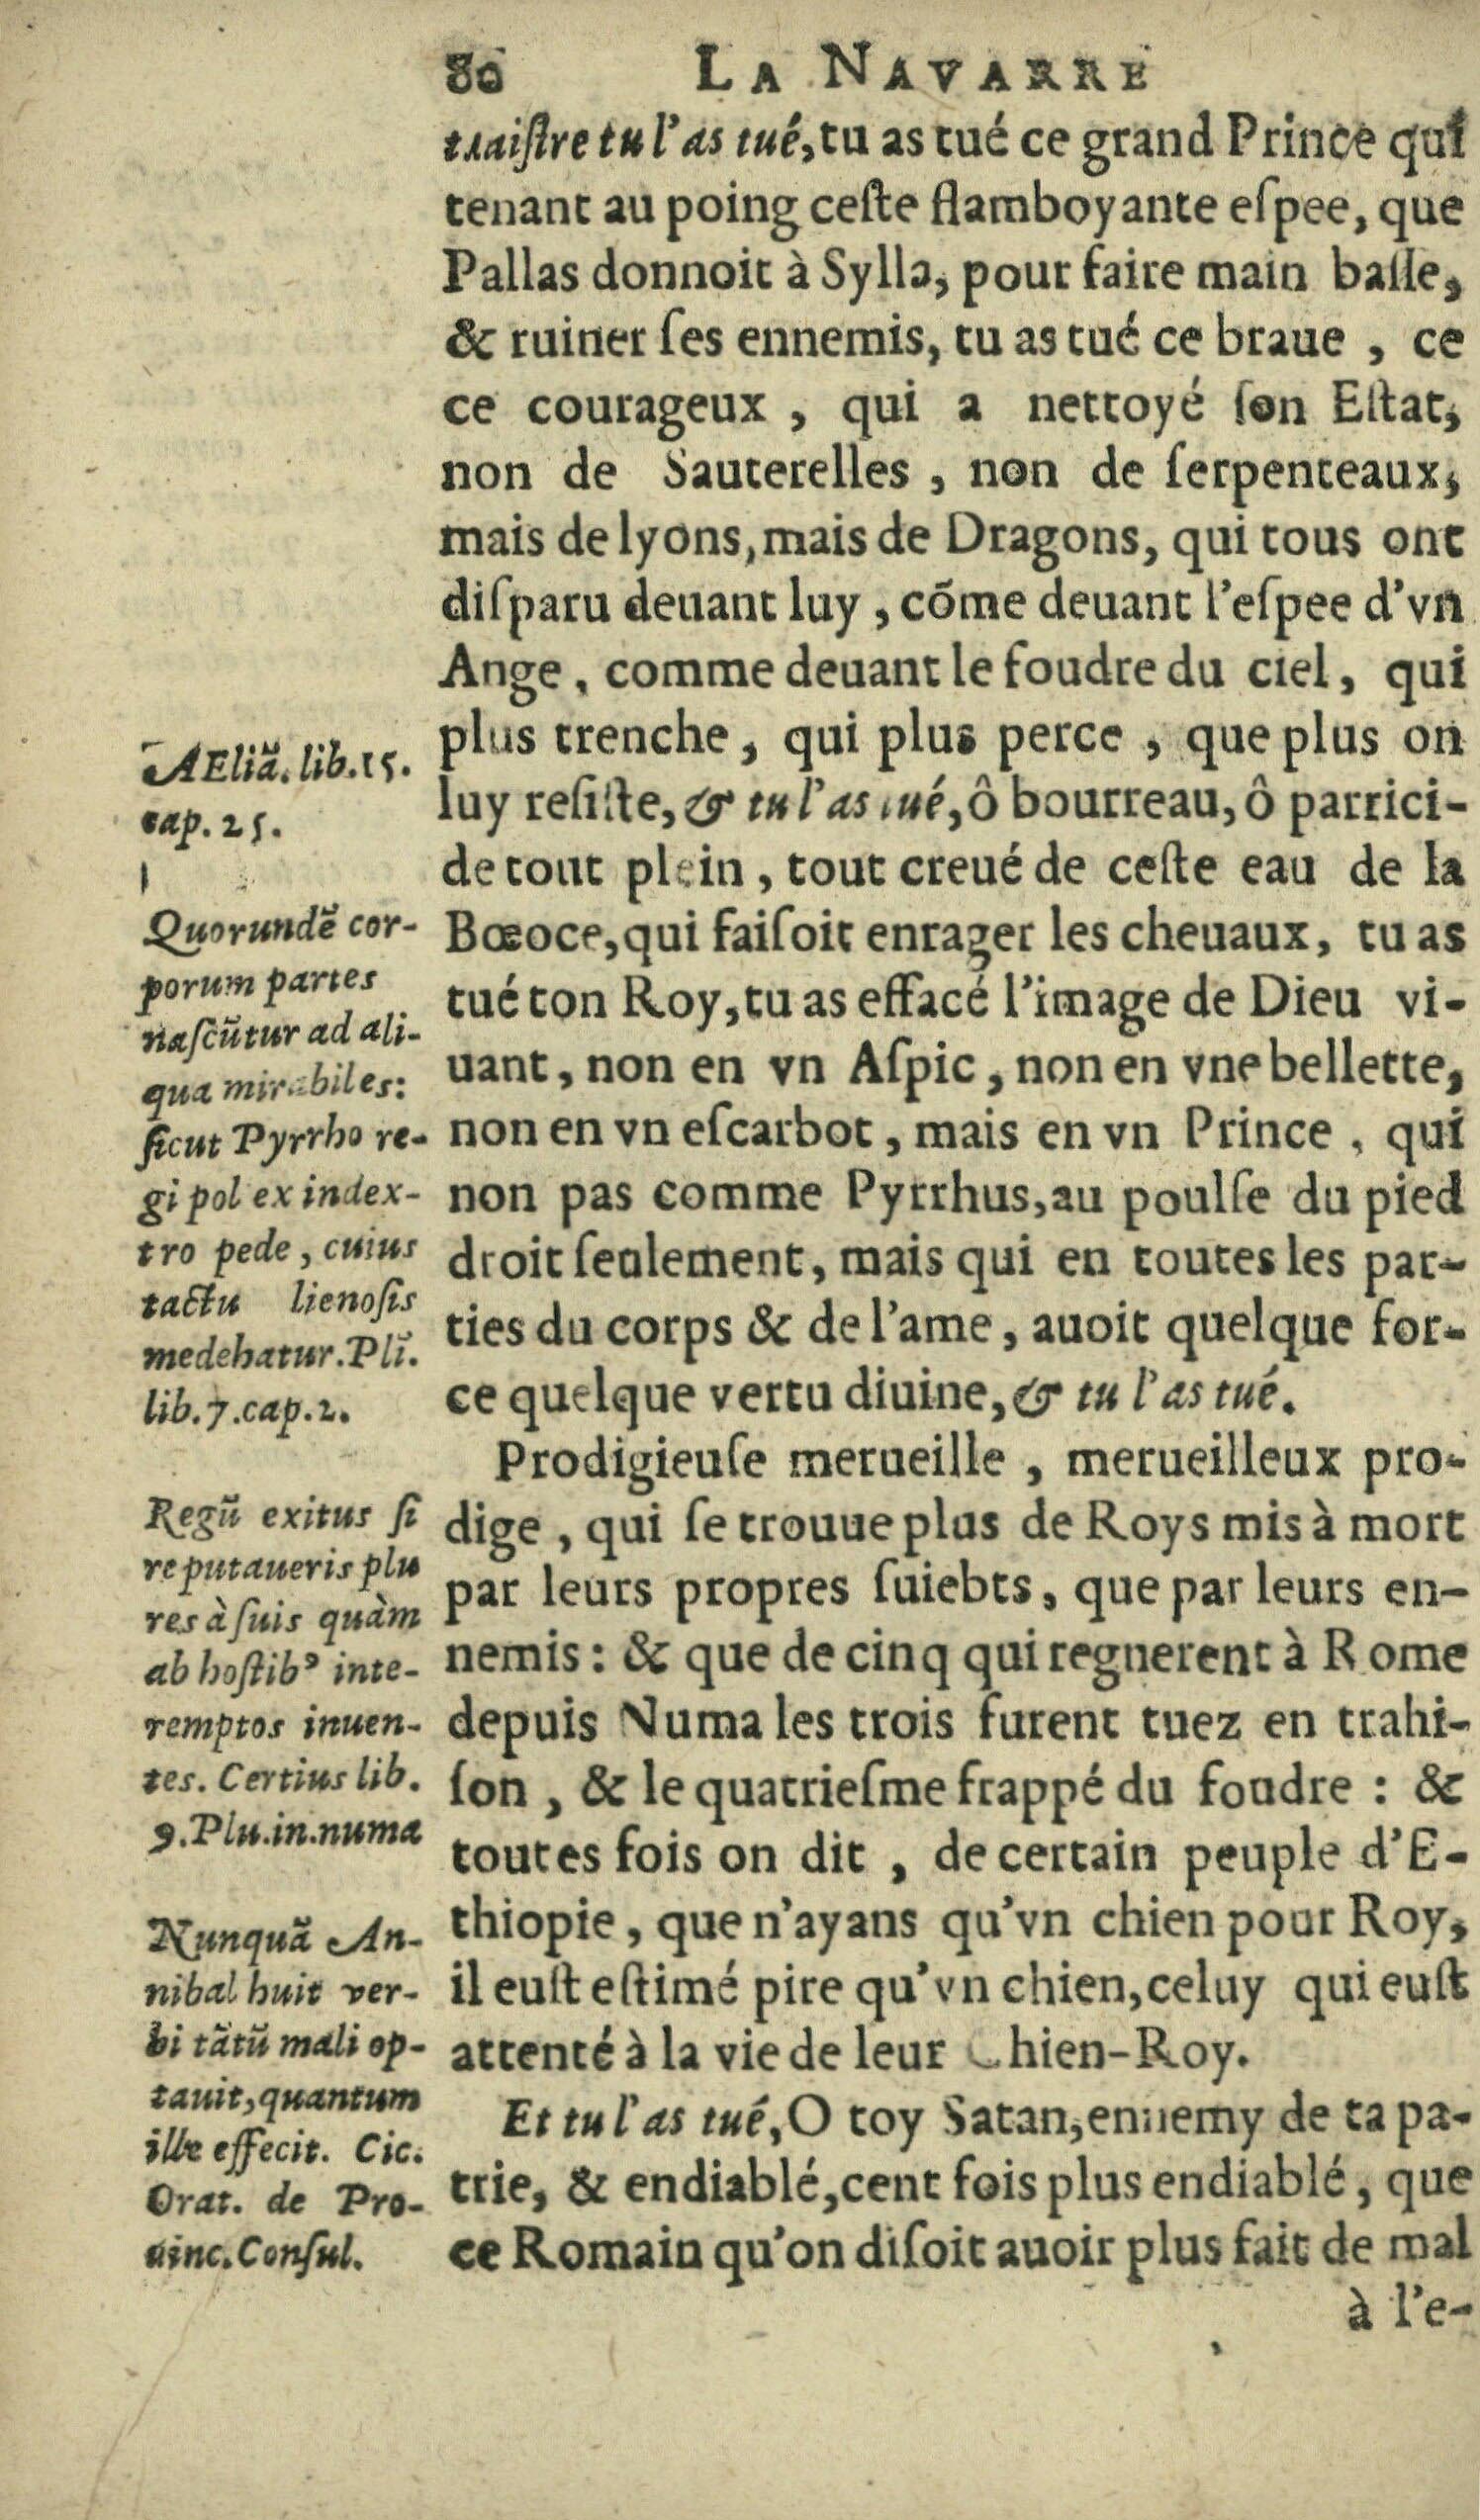 80 LA NAVARRE
traiſtre tu l'as tué, tu as tué ce grand Prince qui
tenant au poing ceſte flamboyante eſpee, que
Pallas donnoit à Sylla, pour faire main baſſe,
& ruiner ſes ennemis, tu as tué ce braue , ce
ce courageux , qui a nettoyé ſon Eſtat,
non de Sauterelles , non de ſerpenteaux,
mais de lyons, mais de Dragons, qui tous ont
diſparu deuant luy , cõme deuant l'eſpee d'vn
Ange, comme deuant le foudre du ciel, qui
plus trenche, qui plus perce , que plus on
luy reſiſte, & tu l'as tué, ô bourreau, ô parrici-
de tout plein , tout creué de ceſte eau de la
Bœoce, qui faiſoit enrager les cheuaux, tu as
tué ton Roy, tu as effacé l'image de Dieu vi-
uant, non en vn Aſpic, non en vne bellette,
non en vn eſcarbot, mais en vn Prince , qui
non pas comme Pyrrhus, au poulſe du pied
droit ſeulement, mais qui en toutes les par-
ties du corps & de l'ame, auoit quelque for-
ce quelque vertu diuine, & tu l'as tué.
Prodigieuſe merueille , merueilleux pro-
dige , qui ſe trouue plus de Roys mis à mort
par leurs propres ſuiebts, que par leurs en-
nemis : & que de cinq qui regnerent à Rome
depuis Numa les trois furent tuez en trahi-
ſon , & le quatrieſme frappé du foudre : &
toutes fois on dit , de certain peuple d'E-
thiopie, que n'ayans qu'vn chien pour Roy,
il euſt eſtimé pire qu'vn chien, celuy qui euſt
attenté à la vie de leur Chien-Roy.
Et tu l'as tué, O toy Satan, ennemy de ta pa-
trie, & endiablé, cent fois plus endiablé, que
ce Romain qu'on diſoit auoir plus fait de mal
à l'e-
AEliã. lib. 15.
cap. 25.
Quorundẽ cor-
porum partes
naſcũtur ad ali-
qua mirabiles:
ſicut Pyrrho re-
gi pol ex in dex-
tro pede, cuius
tactu lienoſis
medebatur. Plĩ.
lib. 7. cap. 2.
Regũ exitus ſi
reputaueris plu
res à ſuis quàm
ab hoſtibꝰ inte-
remptos inuen-
tes. Certius lib.
9. Plu. in. numa
Nunquã An-
nibal huic ver-
bi tãtũ mali op-
tauit, quantum
ille effecit. Cic.
Orat. de Pro-
uinc. Conſul.